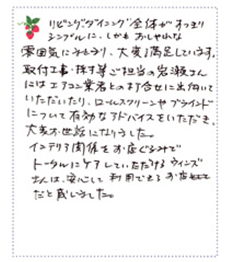 リビングダイニング全体がすっきり
シンプルに、しかもおしゃれな
雰囲気にもなり、大変満足しています。
取付工事・採寸等ご担当の岩瀬さん
にはエアコン業者との打合せに出向いて
いただいたり、ロールスクリーンやブラインド
について有効なアドバイスをいただき、
大変お世話になりました。
インテリア関係をお店ぐるみで
トータルにケアしていただけるウィンズ
さんは、安心して利用できるお店
だと感じました。